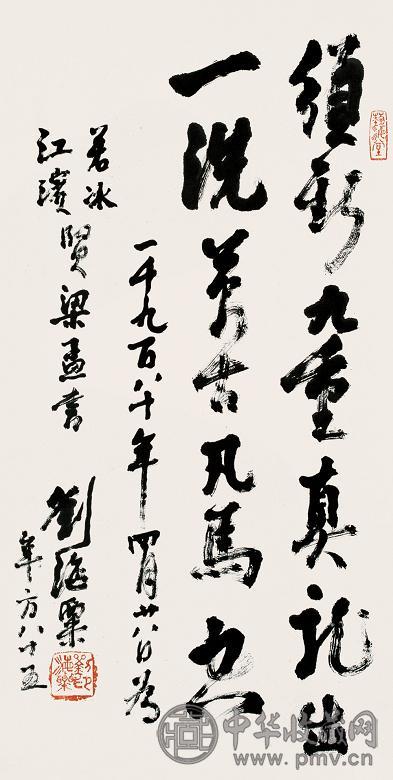 須斯九重真龍出
一洗萬古凡馬空
一千九百八十年四月廿八日為
若冰
江濱賢梁孟書
劉海粟
年方八十五
中华收藏网
www.pmv.cn